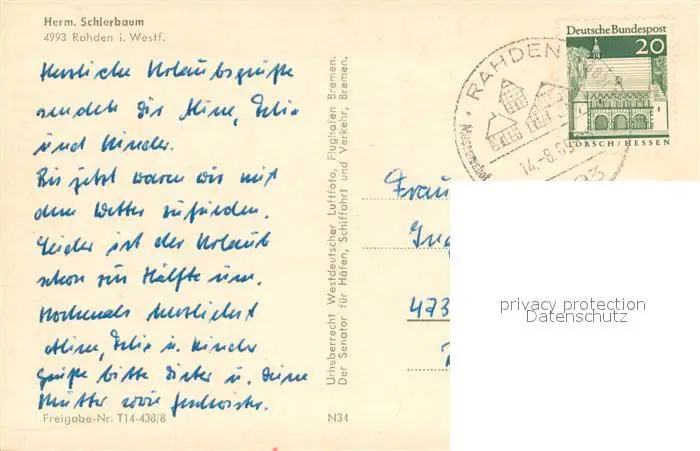 Herm. Schierbaum
4993 Rahden i. Westf.
Herzliche Urlaubsgrüße
senden Dir Aline, Felix
und Kinder.
Bis jetzt waren wir mit
dem Wetter zufrieden.
Leider ist der Urlaub
schon zur Hälfte um.
Nochmals herzlichst
Aline, Felix u. Kinder
Grüße bitte Dieter u. Deine
Mutter sowie Geschwister.
Freigabe-Nr. T14-438/8
N34
Urheberrecht Westdeutscher Luftfoto, Flughafen Bremen.
Der Senator für Häfen, Schiffahrt und Verkehr, Bremen.
RAHDEN
Museumshof
14.-8.69
Deutsche Bundespost
20
LORSCH/HESSEN
Frau
473
privacy protection
Datenschutz